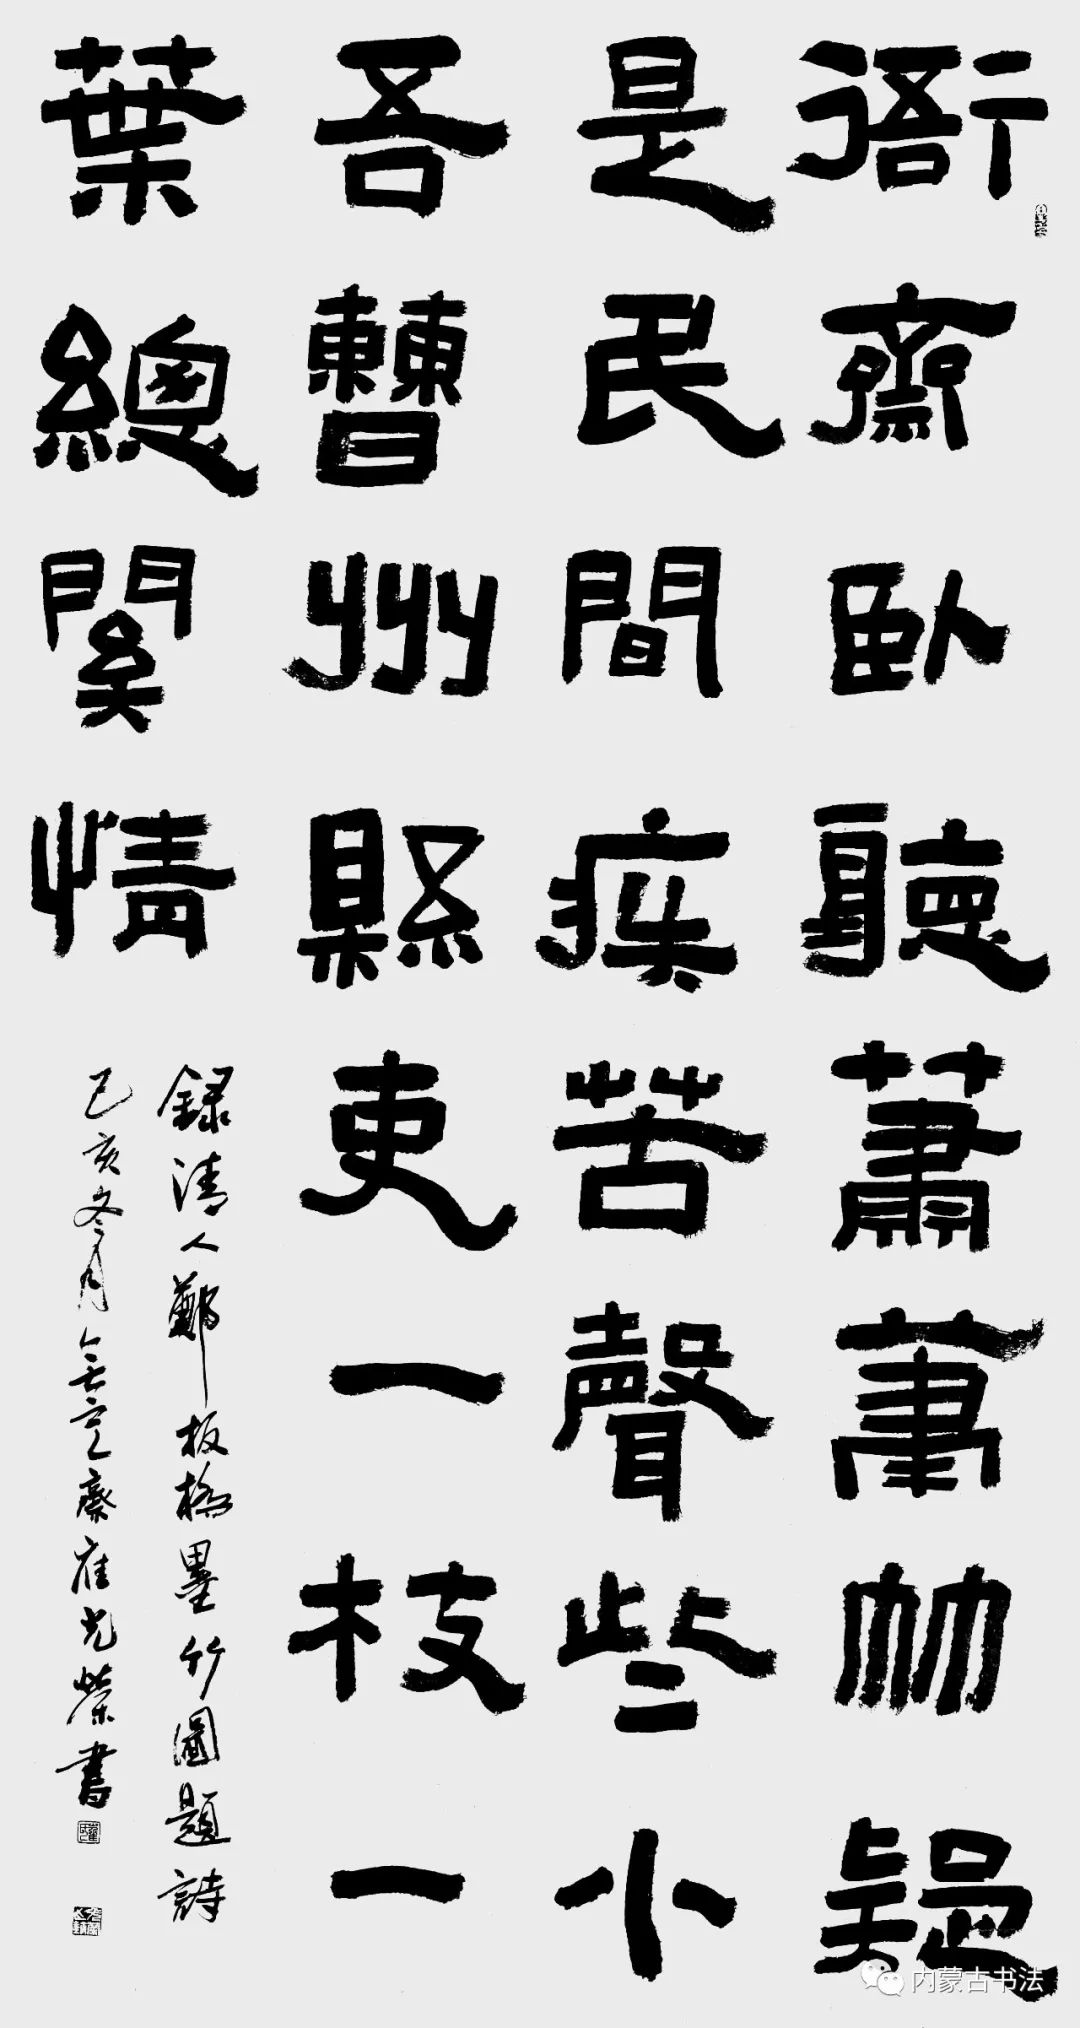 衙齋臥聽蕭蕭竹疑
是民間疾苦聲些小
吾曹州縣吏一枝一
葉總關情
錄清人鄭板橋墨竹圖題詩
己亥冬月無意齋崔光榮書
内蒙古书法